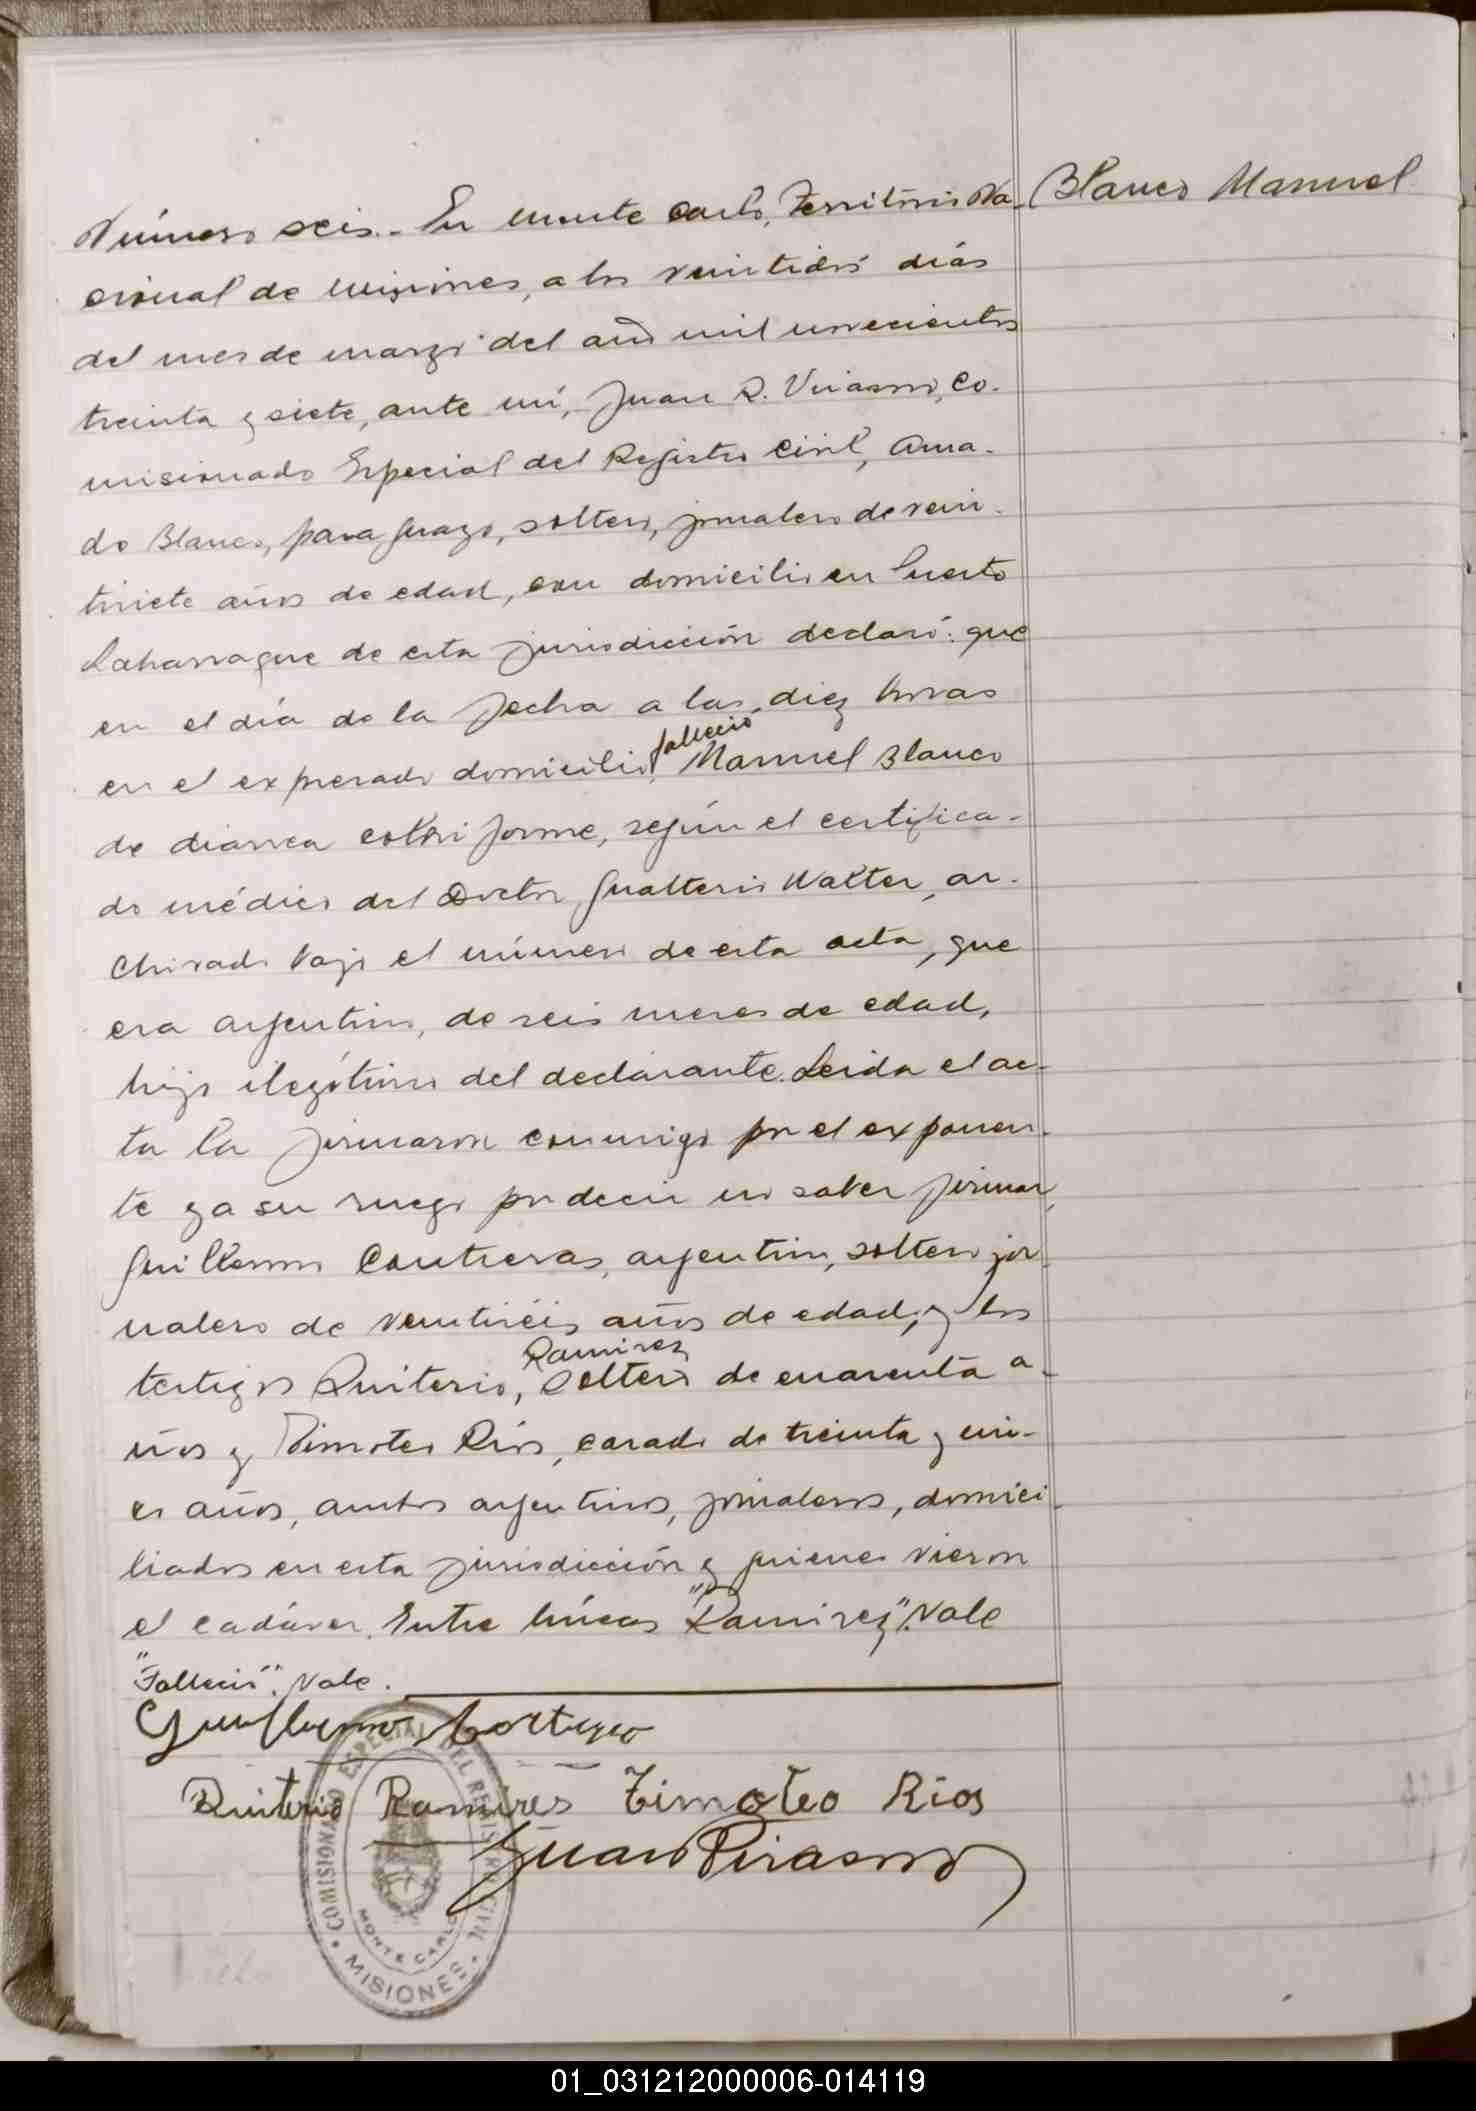 Blanco Manuel
Número seis.- En monte carlo, Territorio Na-
cional de misiones, a los veintidós días
del mes de marzo del año mil novecientos
treinta y siete, ante mí, Juan R. Virasoro, Co-
misionado Especial del Registro Civil, Ama-
do Blanco, paraguayo, soltero, jornalero de vein-
tisiete años de edad, con domicilio en Puerto
Laharrague de esta jurisdicción declaró: que
en el día de la fecha a las diez horas
fallecio
en el expresado domicilio, Manuel Blanco
de diarrea coleriforme, según el certifica-
do médico del Doctor Gualterio Walter, ar-
chivado bajo el número de esta acta, que
era argentino, de seis meses de edad,
hijo ilegótimo del declarante. Leida el ac-
ta la firmaron conmigo por el exponen-
te y a su ruego por decir no saber firmar,
Guillermo Contreras, argentino, soltero jor-
nalero de veintiséis años de edad, y los
Ramirez
testigos Quiterio, soltero de cuarenta a-
ños y Timoteo Ríos, casado de treinta y cin-
co años, ambos argentinos, jornaleros, domici-
liados en esta jurisdicción y quienes vieron
el cadáver. Entre líneas "Ramirez". Vale
"Falleció". Vale.
Guillermo
Quiterio Ramires Timoteo Rios
Juan Virasoro
COMISIONADO ESPECIAL DEL REGISTRO CIVIL
MONTE CARLO
• MISIONES •
01_031212000006-014119